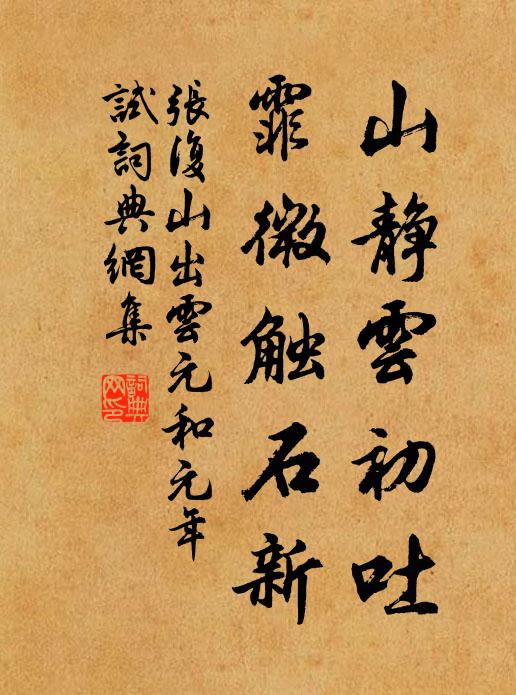 山靜雲初吐
霏微触石新
張復山出雲元和元年
試詞典網集
詞典网印